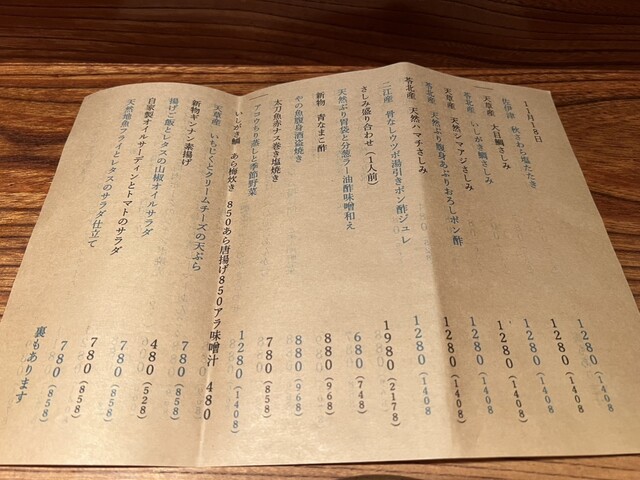 11月18日
佐伊津 秋さわら塩たたき 1280(1408)
天草産 大目鯛さしみ 1280(1408)
苓北産 いしがき鯛さしみ 1280(1408)
天草産 天然シマアジさしみ 1280(1408)
苓北産 天然ぶり腹身あぶりおろしポン酢 1280(1408)
苓北産 天然ハマチさしみ 1280(1408)
二江産 骨なしウツボ湯引きポン酢ジュレ 1280(1408)
さしみ盛り合わせ(1人前) 1980(2178)
天然ぶり胃袋と分葱ラー油酢味噌和え 680(748)
新物 青なまこ酢 880(968)
やの魚腹身酒盗焼き 880(968)
太刀魚赤ナス巻き塩焼き 780(858)
アコウもり蒸しと季節野菜 1280(1408)
いしがき鯛 あら梅炊き 850あら唐揚げ850アラ味噌汁 480
天草産 いちじくとクリームチーズの天ぷら 780(858)
新物ギンナン素揚げ 480(528)
揚げご飯とレタスの山椒オイルサラダ 780(858)
自家製オイルサーディンとトマトのサラダ 780(858)
天然地魚フライとレタスのサラダ仕立て 780(858)
裏もあります